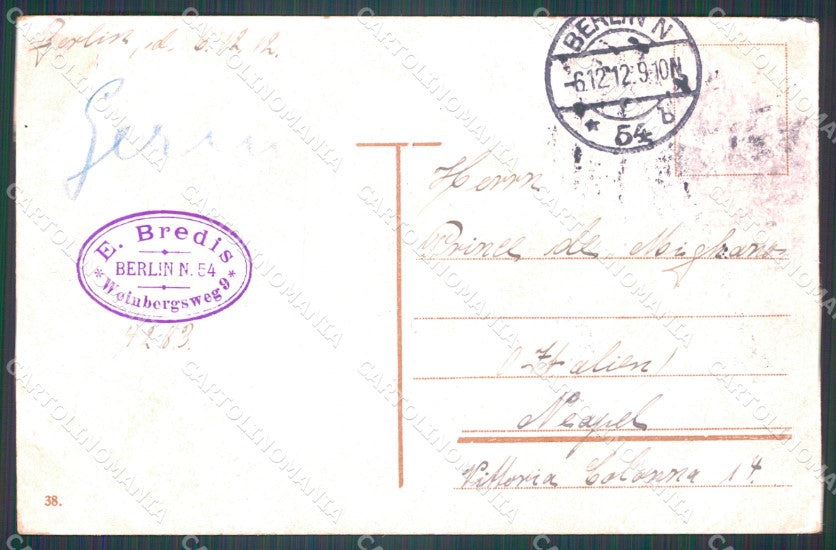 Berlin, d. 6.12.12.
BERLIN N
-6.12.12.9-10N
* 54 g
Germ
E. Bredis
BERLIN N. 54
* Weinbergsweg 9 *
4283.
Herrn
Prince de Mignano
(Italien)
Neapel
Vittoria Colonna 14.
38.
CARTOLINOMANIA